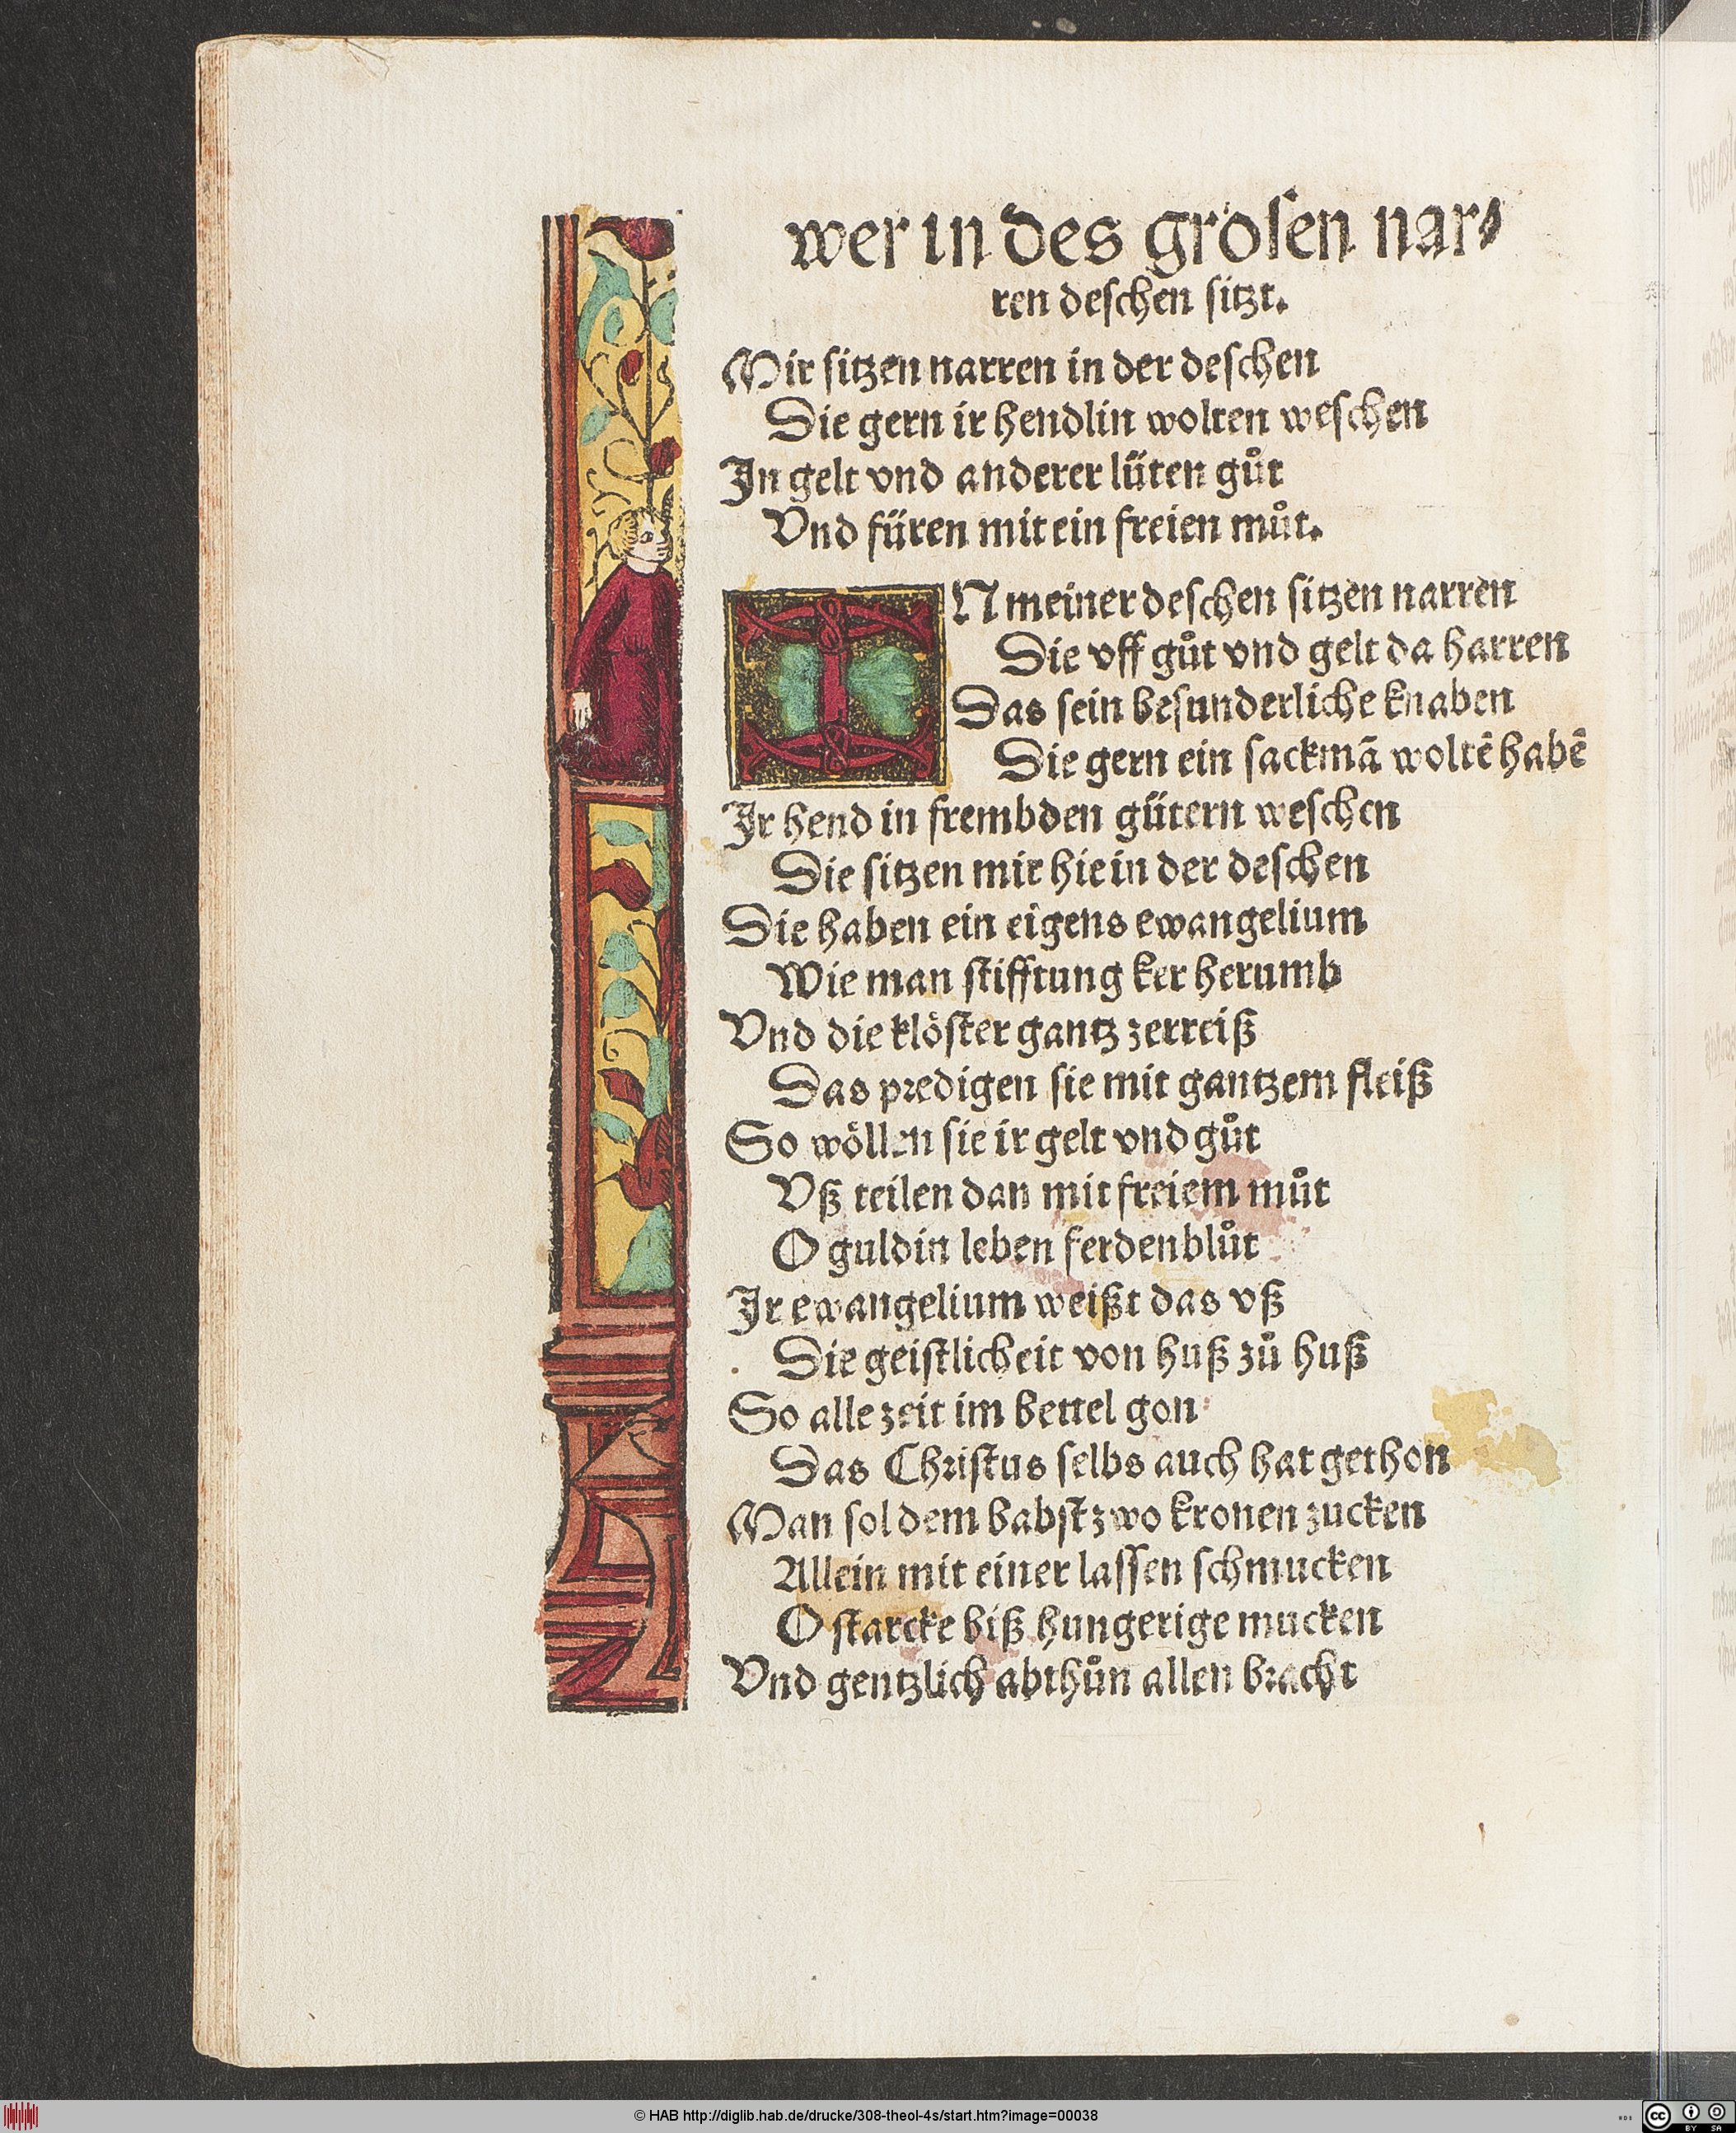 wer in des grosen nar⸗
ren deschen sitzt.
Mir sitzen narren in der deschen
Die gern ir hendlin wolten weschen
In gelt vnd anderer lüten gůt
Vnd füren mit ein freien můt.
IN meiner deschen sitzen narren
Die vff gůt vnd gelt da harren
Das sein besunderliche knaben
Die gern ein sackmã woltẽ habẽ
Ir hend in frembden gütern weschen
Die sitzen mir hie in der deschen
Die haben ein eigens ewangelium
Wie man stifftung ker herumb
Vnd die klöster gantz zerreiß
Das predigen sie mit gantzem fleiß
So wöllen sie ir gelt vnd gůt
Vß teilen dan mit freiem můt
O guldin leben ferdenblůt
Ir ewangelium weißt das vß
Die geistlicheit von huß zů huß
So alle zeit im bettel gon
Das Christus selbs auch hat gethon
Man sol dem babst zwo kronen zucken
Allein mit einer lassen schmucken
O starcke biß hungerige mucken
Vnd gentzlich abthůn allen bracht
© HAB http://diglib.hab.de/drucke/308-theol-4s/start.htm?image=00038
cc BY SA